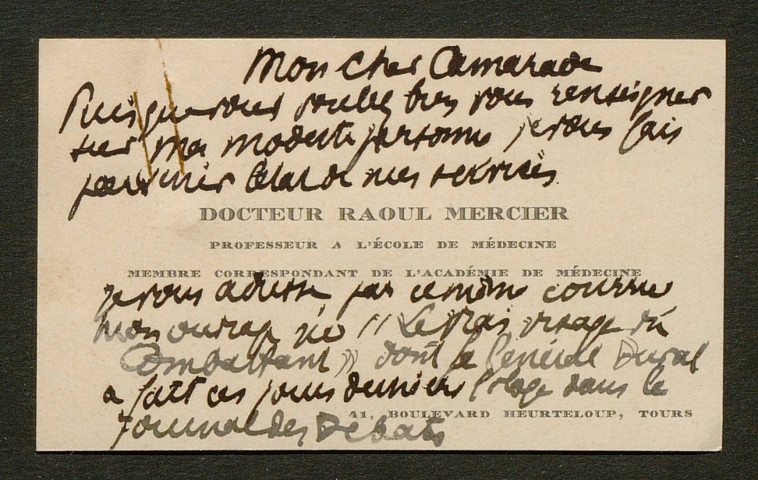 Mon cher Camarade
Puisque vous voulez bien vous renseigner
sur ma modeste personne je vous fais
parvenir l'état de mes services
DOCTEUR RAOUL MERCIER
PROFESSEUR A L'ÉCOLE DE MÉDECINE
MEMBRE CORRESPONDANT DE L'ACADÉMIE DE MÉDECINE
je vous adresse par ce même courrier
mon ouvrage "Le vrai visage du
Combattant" dont le Général Duval
a fait ces jours derniers l'éloge dans le
41, BOULEVARD HEURTELOUP, TOURS
Journal des Débats